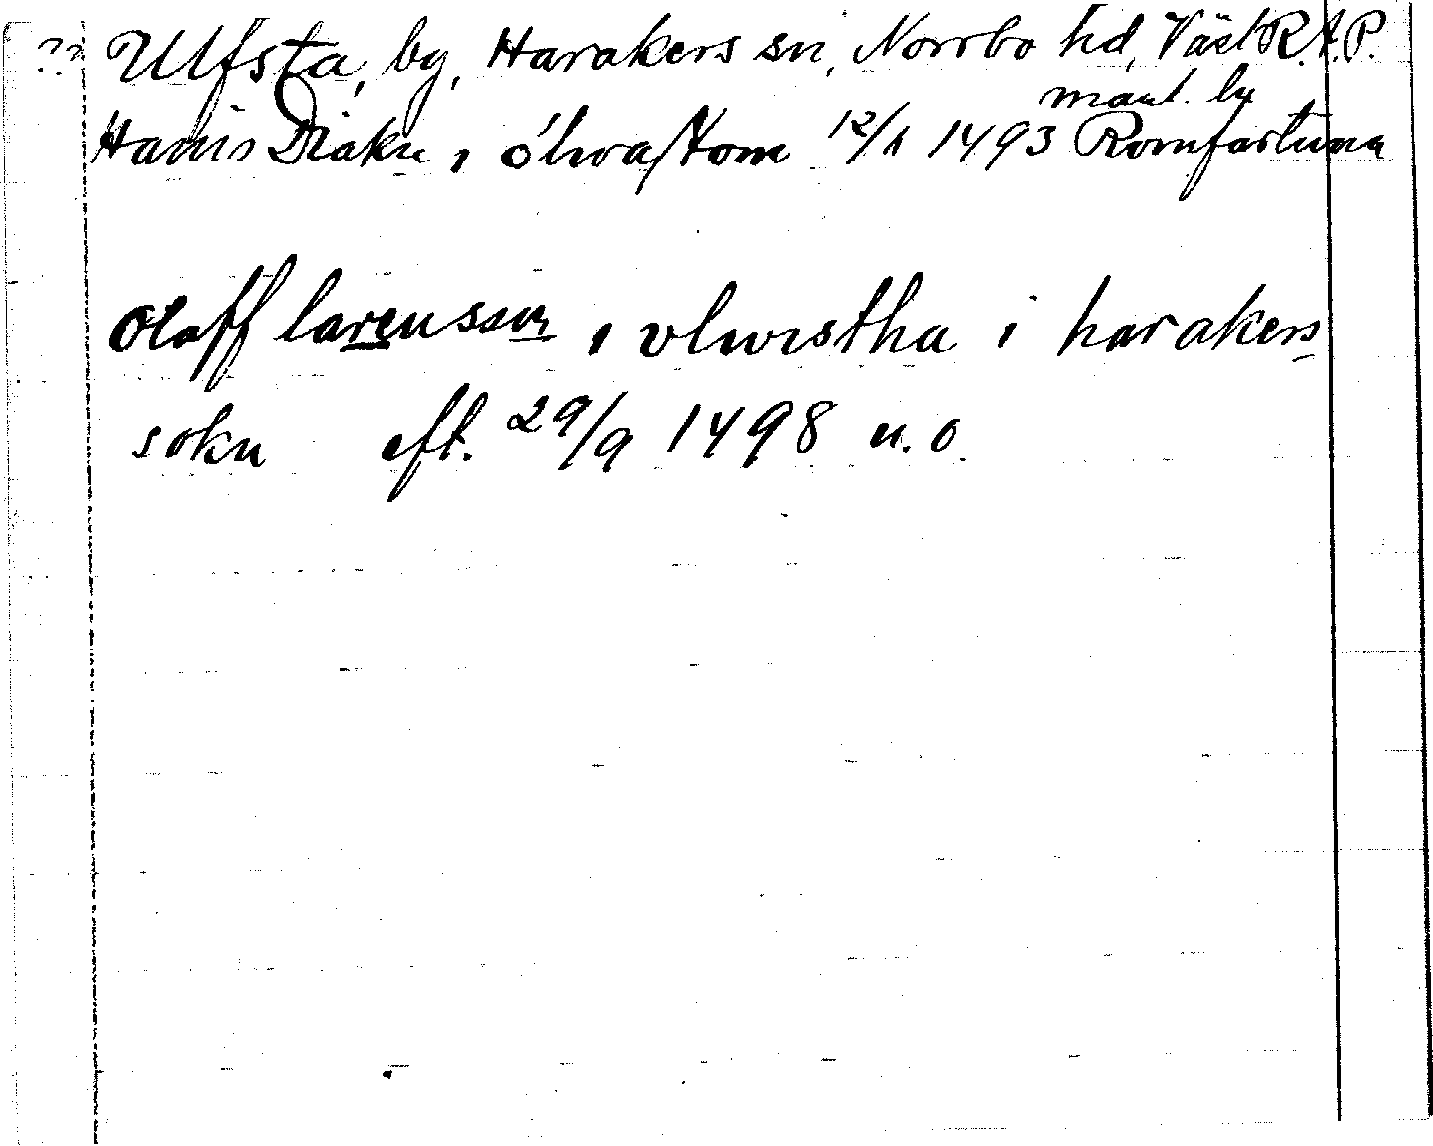 ?? Ulfsta, by, Harakers sn, Norrbo hd, Västl. R.A.P.
mant. by
Hanis Diakn i ólwastom 12/1 1493 Romfartuna
Olaff larensson i vlwestha i harakers
sokn eft. 29/9 1498 u.o.